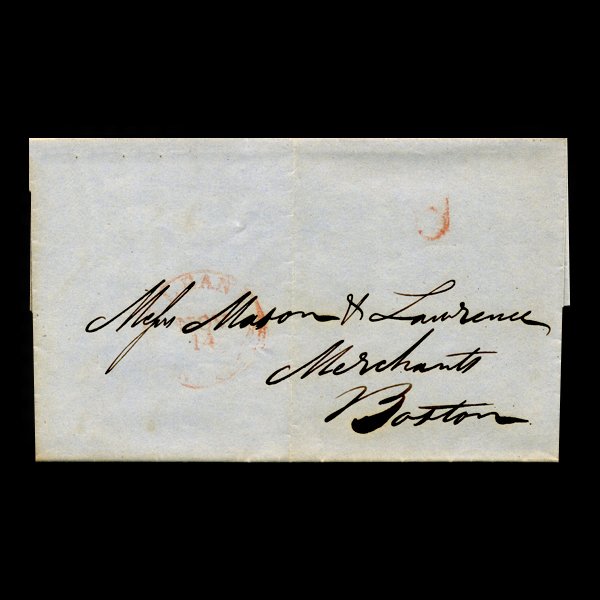 5
CAN
14
Mess Mason & Lawrence
Merchants
Boston